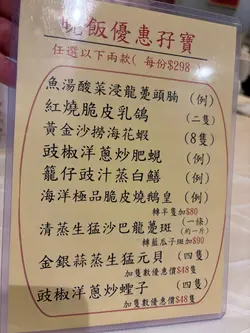 晚飯優惠孖寶
任選以下兩款(每份$298
魚湯酸菜浸龍躉頭腩 (例)
紅燒脆皮乳鴿 (二隻)
黃金沙撈海花蝦 (8隻)
豉椒洋蔥炒肥蜆 (例)
籠仔豉汁蒸白鱔 (例)
海洋極品脆皮燒鵝皇 (例)
轉半隻加$80
清蒸生猛沙巴龍躉斑 (一條)
(約一斤)
轉藍瓜子斑加$90
金銀蒜蒸生猛元貝 (四隻)
加隻數優惠價$48隻
豉椒洋蔥炒蟶子 (四隻)
加隻數優惠價$48隻